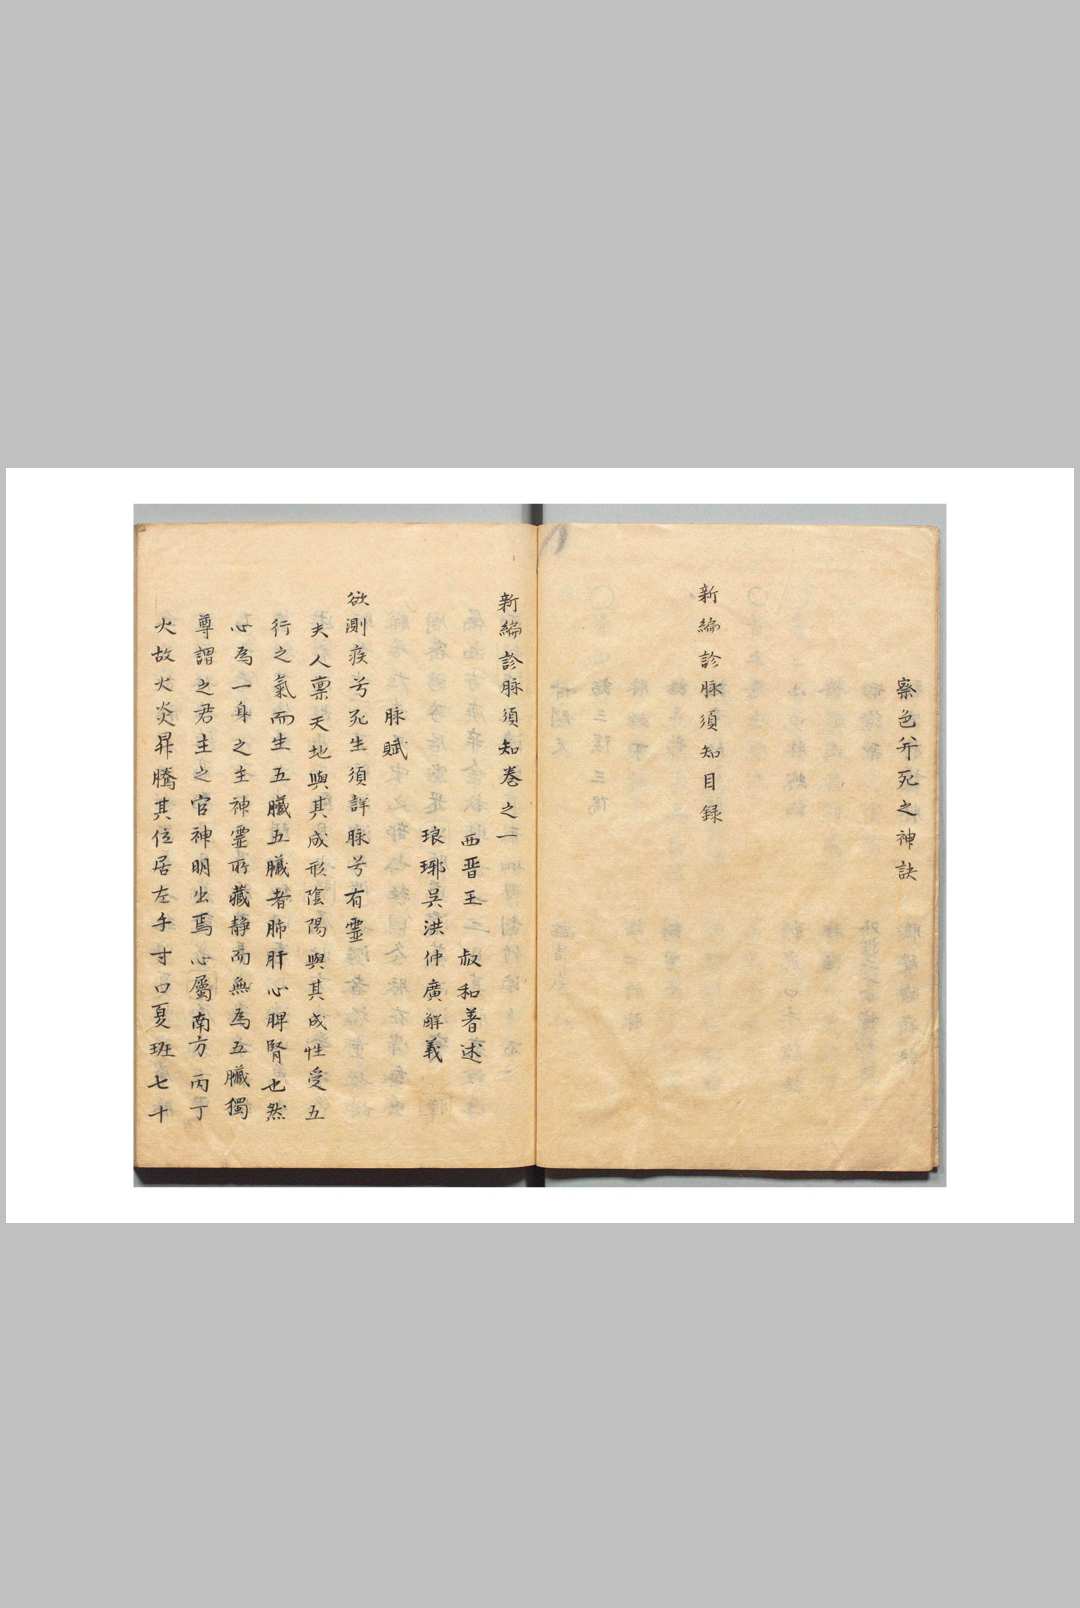 察色并死之神訣
新編診脉須知目録
新編診脉須知卷之一
西晋王叔和著述
琅琊吳洪仲廣解義
脉賦
欲測疾兮死生須詳脉兮有靈
夫人稟天地與其成形陰陽與其成性受五
行之氣而生五臟五臟者肺肝心脾腎也然
心為一身之主神靈所藏静而無為五臟獨
尊謂之君主之官神明出焉心屬南方丙丁
火故火炎昇騰其位居左手寸口夏班七十